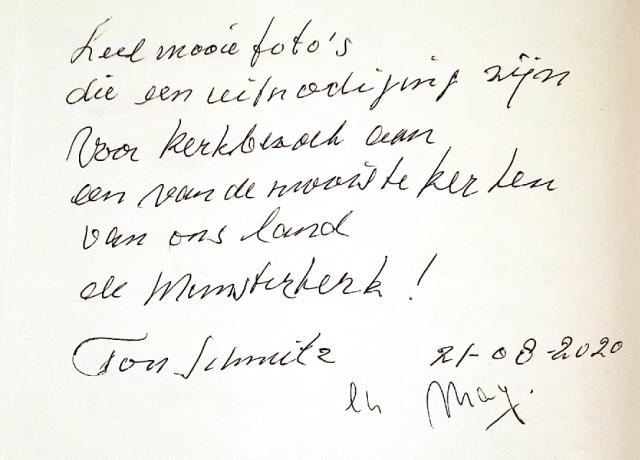 Heel mooie foto's
die een uitnodiging zijn
voor kerkbezoek aan
een van de mooiste kerken
van ons land
de Munsterkerk!
Ton Schmitz 21-08-2020
en May.